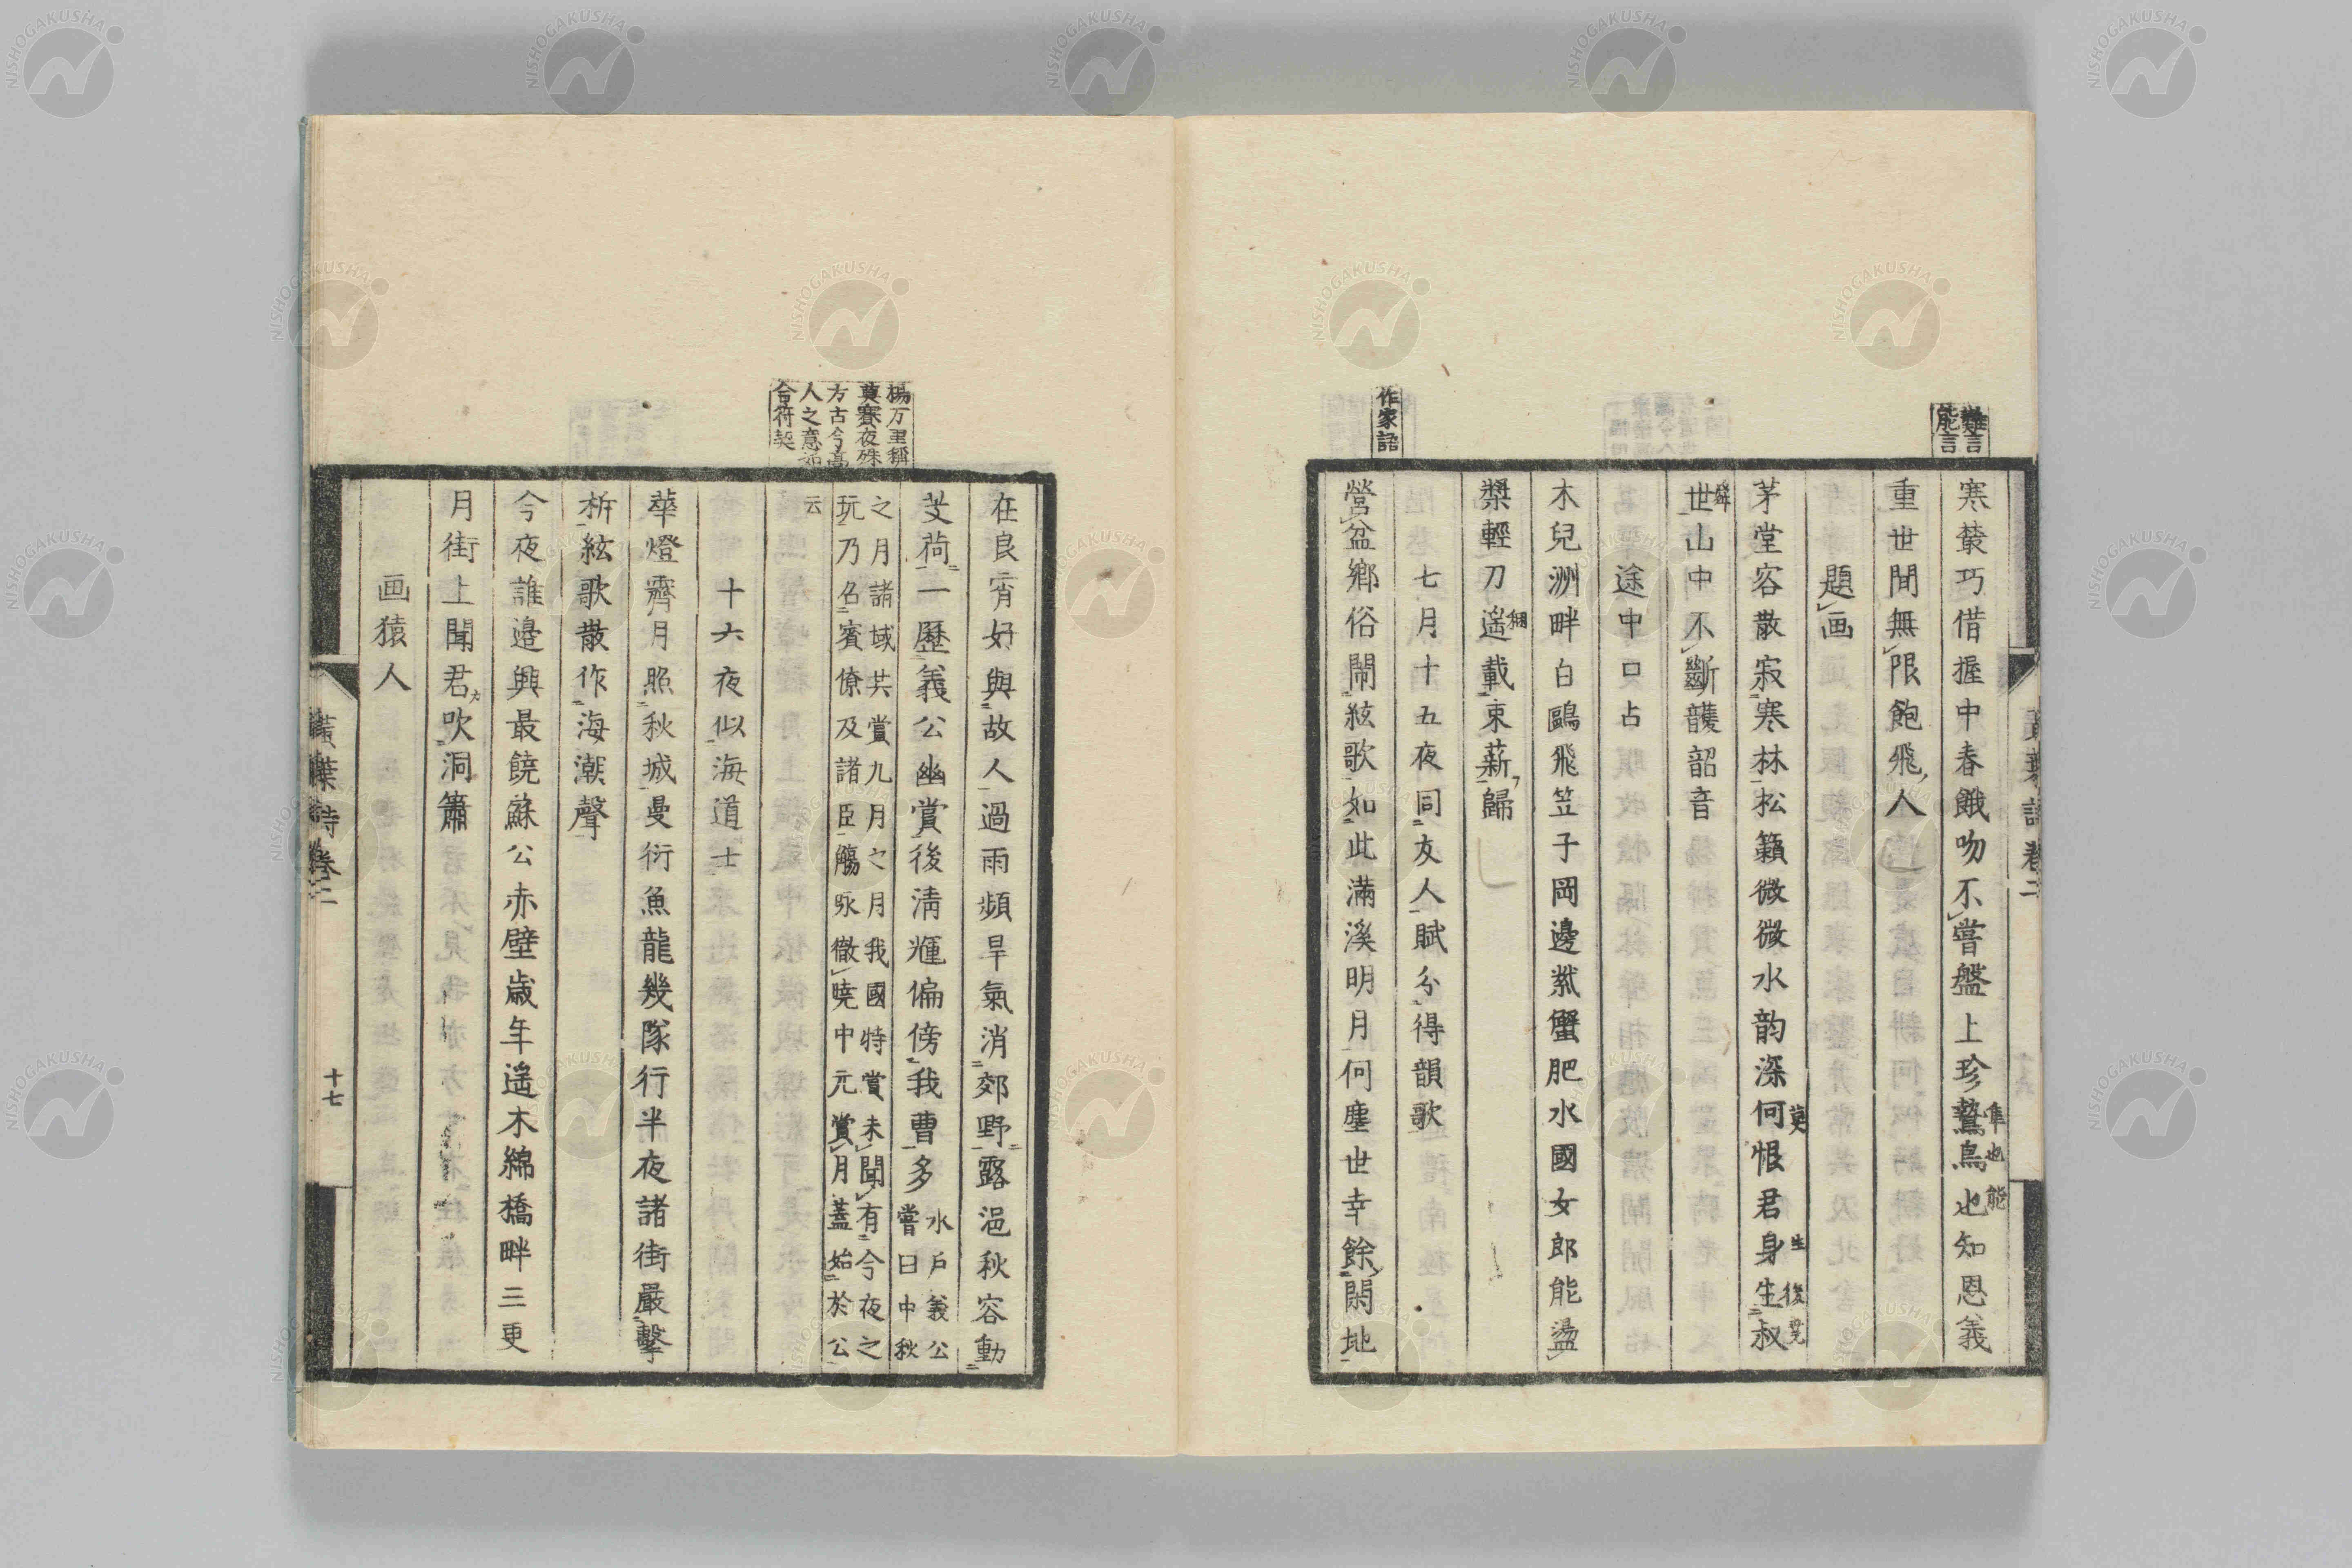 難言
能言
寒蔾巧借握中春餓吻不嘗盤上珍鷙鳥也知恩義
隼也能
重世間無限飽飛人
題画
茅堂容散寂寒林松籟微微水韵深何恨君身生叔
莫
生後
世山中不斷頀韶音
途中口占
木兒洲畔白鷗飛笠子岡邊紫蟹肥水國女郎能盪
槳輕刀遙載束薪歸
七月十五夜同友人賦分得韻歌
作家語
營盆鄉俗鬧絃歌如此滿溪明月何塵世幸餘閑地
在良宵好與故人過雨頻旱氣消郊野露浥秋容動
芰荷一歷義公幽賞後清輝偏傍我曹多
水戶義公
嘗曰中秋
之月諸域共賞九月之月我國特賞未聞有今夜之
玩乃名賓僚及諸臣觴咏徹曉中元賞月蓋始於公
云
楊万里稱
莫賽夜殊
方古今高
人之意如
合符契
十六夜似海道士
華燈齊月照秋城曼衍魚龍幾隊行半夜諸街嚴擊
柝絃歌散作海潮聲
今夜誰邉興最饒蘇公赤壁歲年遙木綿橋畔三更
月街上聞君吹洞簫
画猿人
黃葉詩卷二
十七